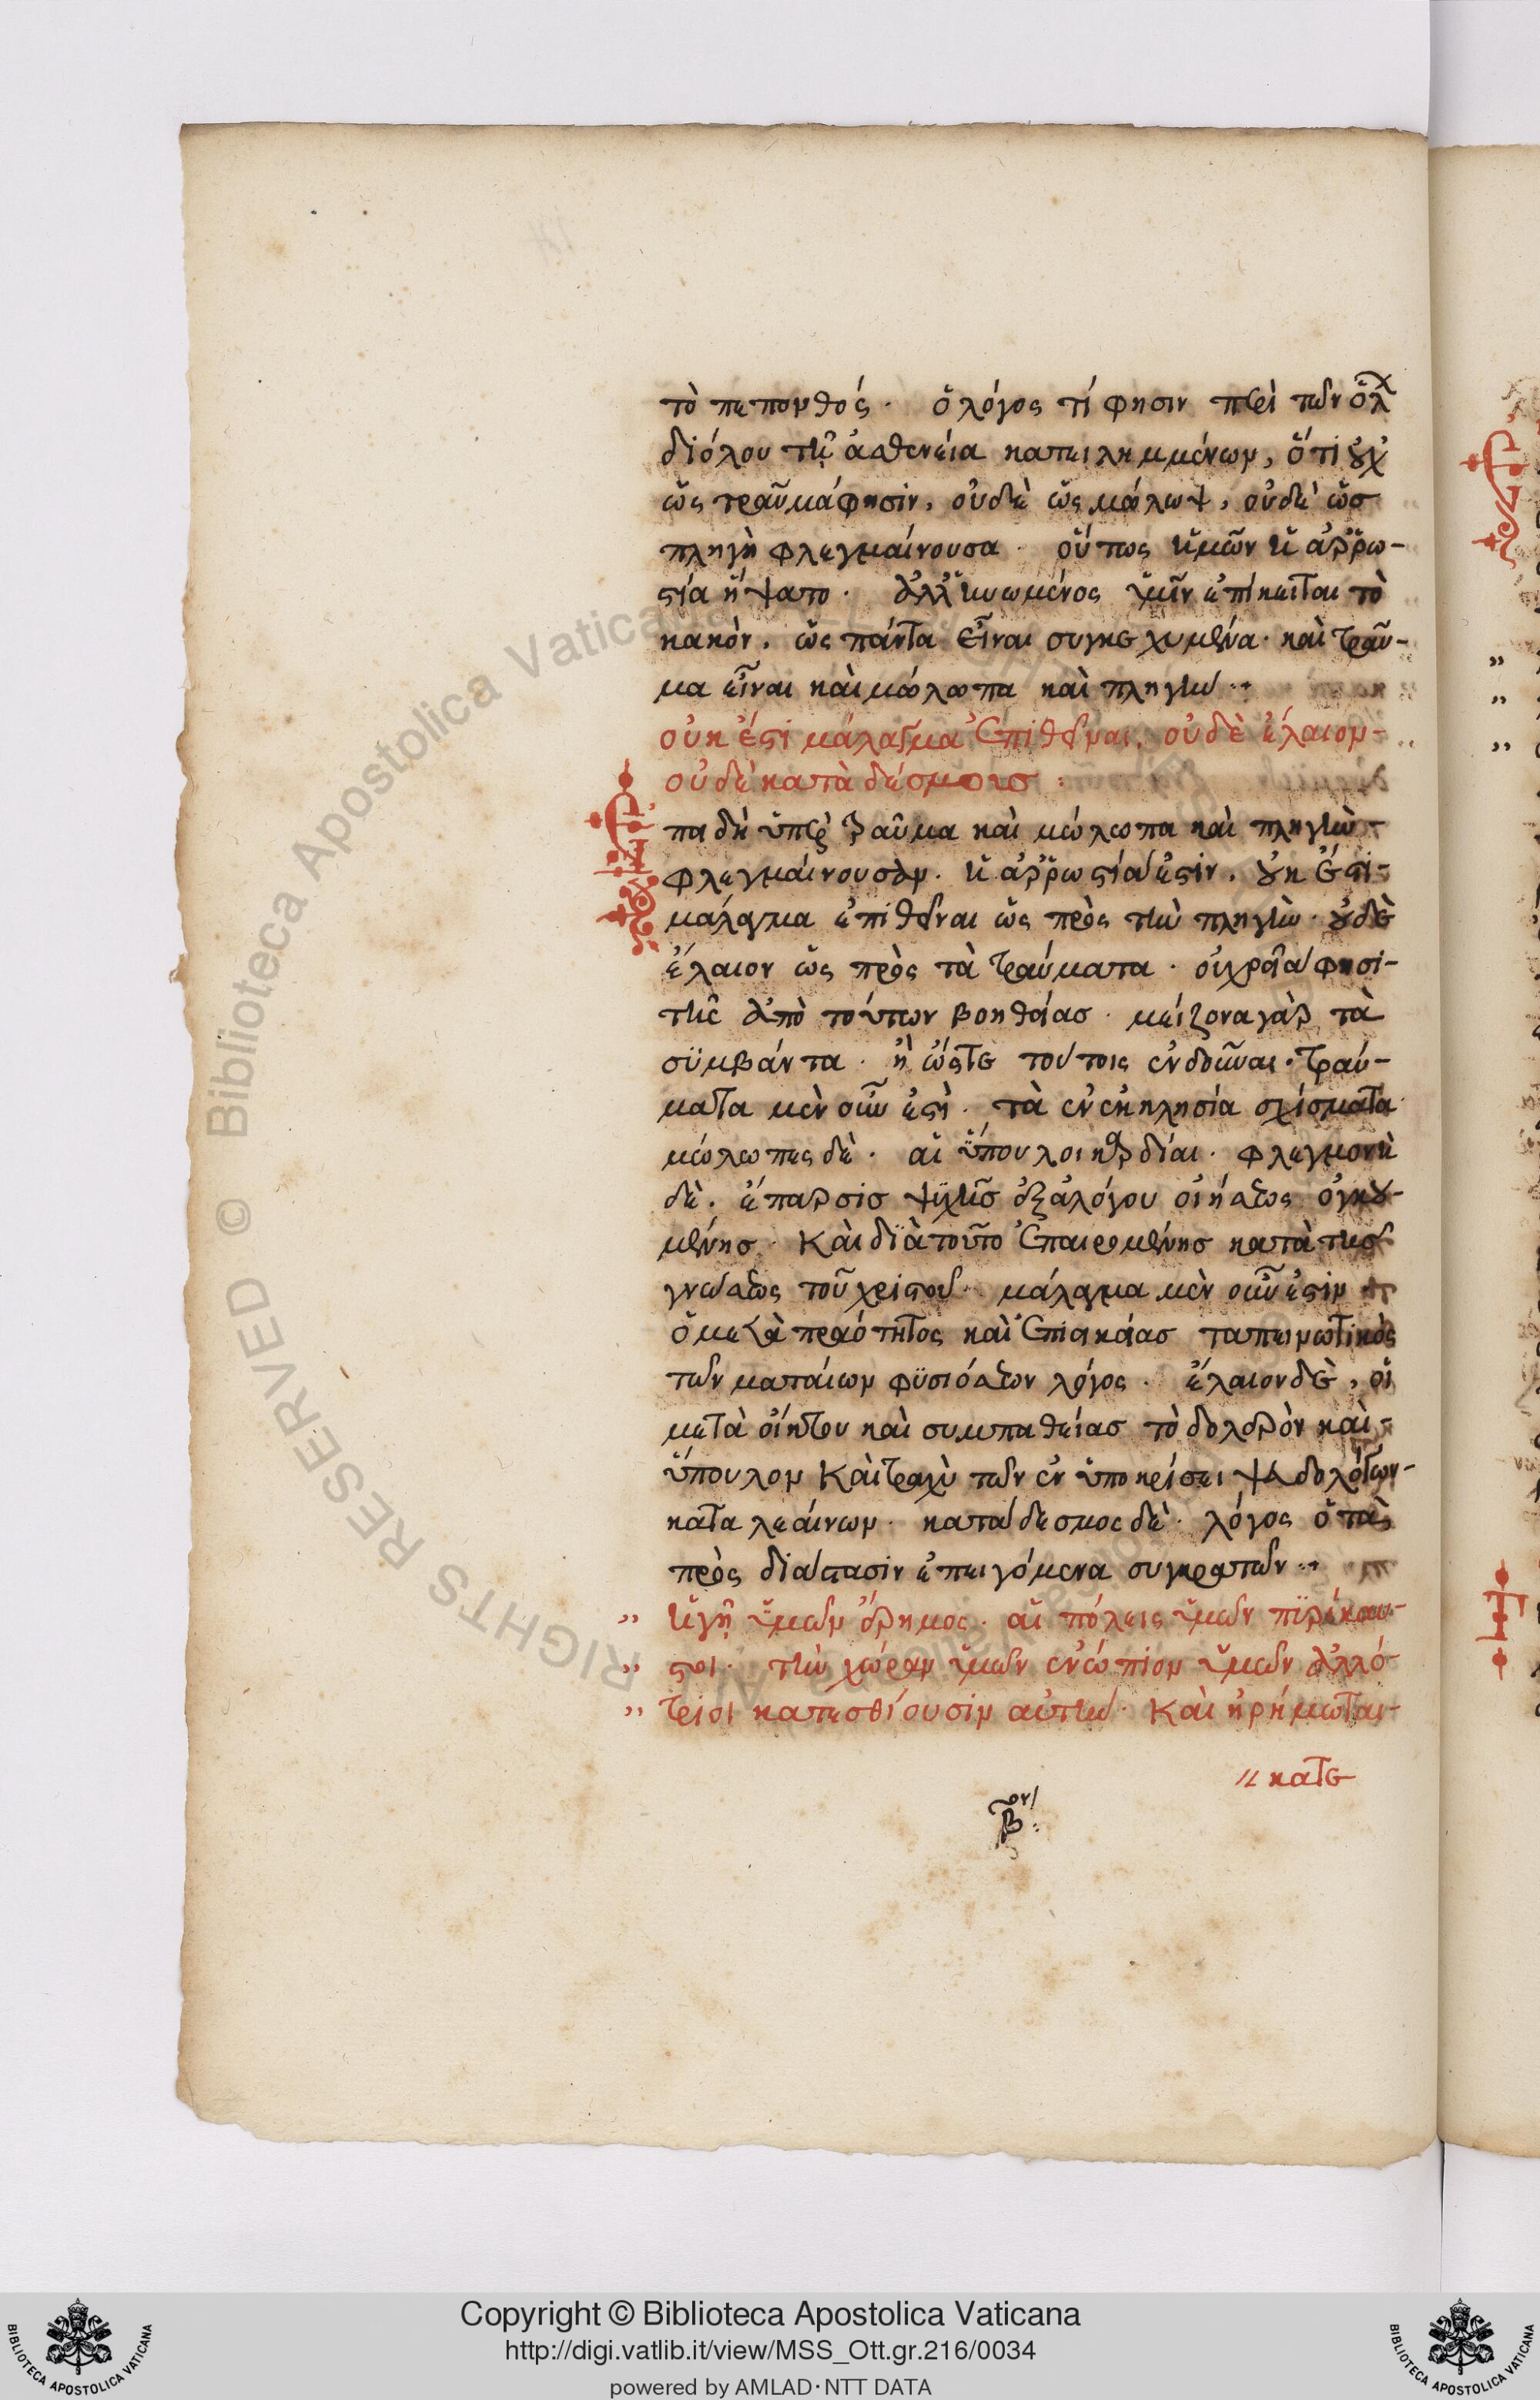 τὸ πεπονθός. ὁ λόγος τί φησιν περὶ τῶν ὅλ
διόλου τῇ ἀσθενεία κατειλημμένων, ὅτι οὐχ
ὡς τραῦμά φησίν, οὐδὲ ὡς μώλωψ, οὐδὲ ὡσ
πληγὴ φλεγμαίνουσα. οὕτως ἡμῶν ἡ ἀῤῥω-
στία ἥψατο. ἀλλ' ἡνωμένος ὑμῖν ἐπίκειται τὸ
κακὸν. ὡς πάντα εἶναι συγκεχυμένα. καὶ τραῦ-
μα εἶναι καὶ μώλωπα καὶ πληγήν
οὐκ ἔστι μάλαγμα ἐπιθεῖναι, οὐδὲ ἔλαιον-
οὐδὲ καταδέσμουσ :
πειδὴ ὑπὲρ τραῦμα καὶ μώλωπα καὶ πληγὴν
φλεγμαίνουσαν. ἡ ἀῤῥωστία ἐστίν. οὐκ ἔστι-
μάλαγμα ἐπιθεῖναι ὡς πρὸς τὴν πληγὴν. οὐδὲ
ἔλαιον ὡς πρὸς τὰ τραύματα. οὐ χρεία φησί-
τῆς ἀπὸ τούτων βοηθείασ. μείζονα γὰρ τὰ
συμβάντα. ἢ ὥστε τούτοις ἐνδοῦναι. τραύ-
ματα μὲν οὖν ἐστὶ. τὰ ἐν ἐκκλησία σχίσματα
μώλωπες δὲ. αἱ ὕπουλοι καρδίαι. φλεγμονὴ
δὲ. ἔπαρσισ ψυχῆσ ἐξ ἀλόγου οἰήσεως ὀγκου-
μένησ. Καὶ διὰ τοῦτο ἐπαιρομένησ κατὰ τῆσ
γνώσεως τοῦ χριστοῦ. μάλαγμα μὲν οὖν ἐστιν
ὁ μετὰ πραότητος καὶ ἐπιεικείασ ταπεινωτικὸς
τῶν ματαίων φυσιόσεων λόγος. ἔλαιον δὲ, οἱ
μετὰ οἴκτου καὶ συμπαθείασ τὸ δολερὸν καὶ
ὕπουλον Καὶ τραχὺ τῶν ἐν ὑποκρίσει ψευδολόγων-
καταλεαίνων. κατάδεσμος δὲ. λόγος ὁ τὰ
πρὸς διάστασιν ἐπειγόμενα συγκρατῶν
ἡ γῆ ὑμῶν ἔρημος. αἱ πόλεις ὑμῶν πυρίκαυ-
στοι. τὴν χώραν ὑμῶν ἐνώπιον ὑμῶν ἀλλό-
τριοι κατεσθίουσιν αὐτὴν. Καὶ ἠρήμωται-
κατε
β
Copyright © Biblioteca Apostolica Vaticana
http://digi.vatlib.it/view/MSS_Ott.gr.216/0034
powered by AMLAD·NTT DATA
BIBLIOTECA APOSTOLICA VATICANA
BIBLIOTECA APOSTOLICA VATICANA